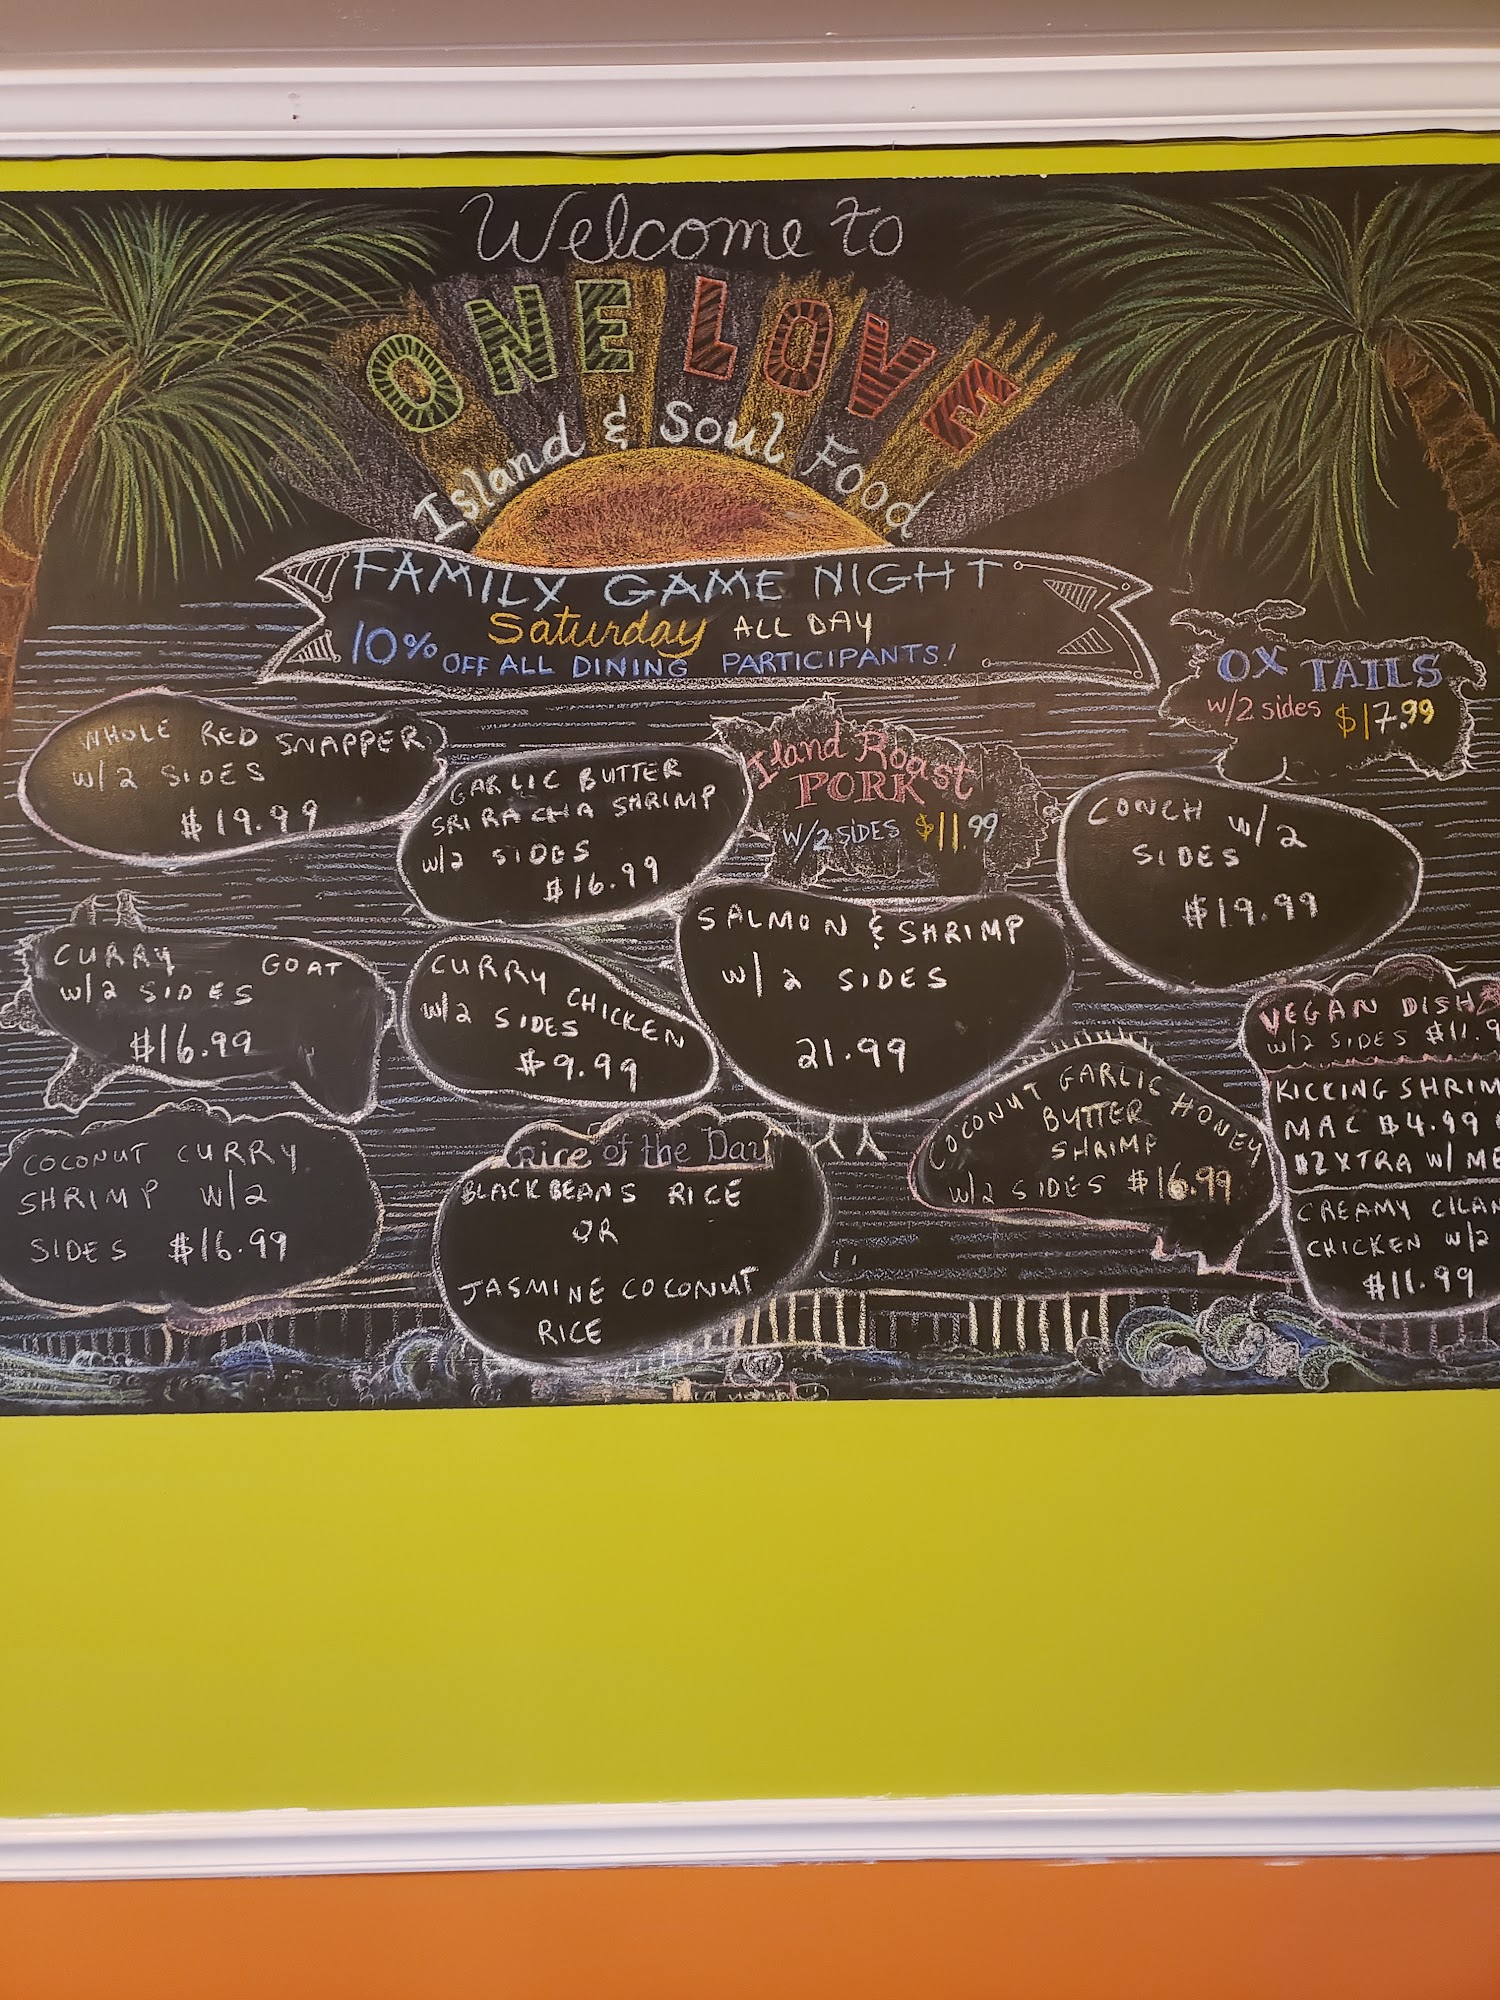 Welcome to
ONE LOVE
Island & Soul Food
FAMILY GAME NIGHT
Saturday ALL DAY
10% OFF ALL DINING PARTICIPANTS!
OX TAILS
w/2 sides $17.99
WHOLE RED SNAPPER
w/2 SIDES
$19.99
GARLIC BUTTER
SRIRACHA SHRIMP
w/2 SIDES
$16.99
Island Roast
PORK
W/2 SIDES $11.99
CONCH w/2
SIDES
$19.99
CURRY GOAT
w/2 SIDES
$16.99
CURRY CHICKEN
w/2 SIDES
$9.99
SALMON & SHRIMP
w/2 SIDES
21.99
VEGAN DISH
w/2 SIDES $11.9
KICKING SHRIM
MAC $4.99
$2 XTRA W/ ME
CREAMY CILAN
CHICKEN w/2
$11.99
COCONUT CURRY
SHRIMP w/2
SIDES $16.99
Rice of the Day
BLACK BEANS RICE
OR
JASMINE COCONUT
RICE
COCONUT GARLIC HONEY
BUTTER
SHRIMP
w/2 SIDES $16.99